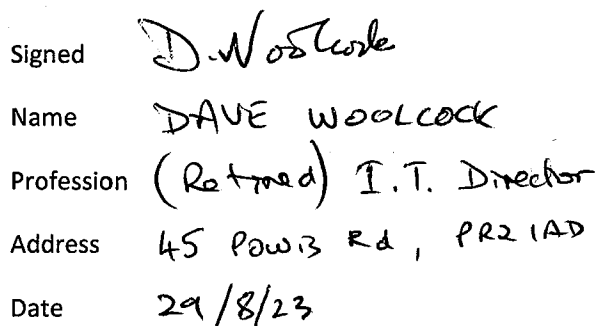 Signed D. Woolcock
Name DAVE WOOLCOCK
Profession (Retired) I.T. Director
Address 45 Powis Rd, PR2 1AD
Date 29/8/23